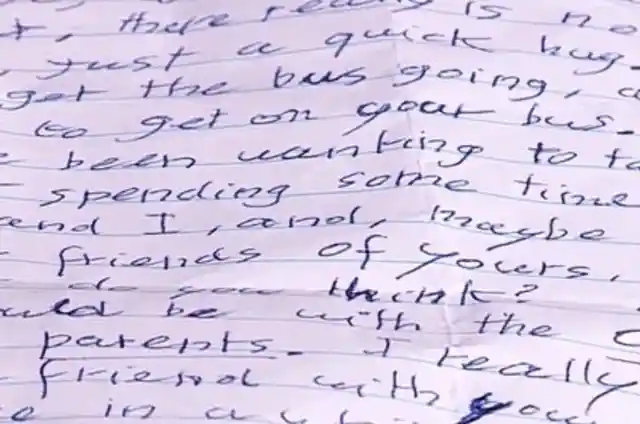 there really is no
just a quick hug.
get the bus going,
to get on your bus.
been wanting to
spending some time
and I, and, maybe
friends of yours.
do you think?
be with the
parents. I really
friend with you
in a